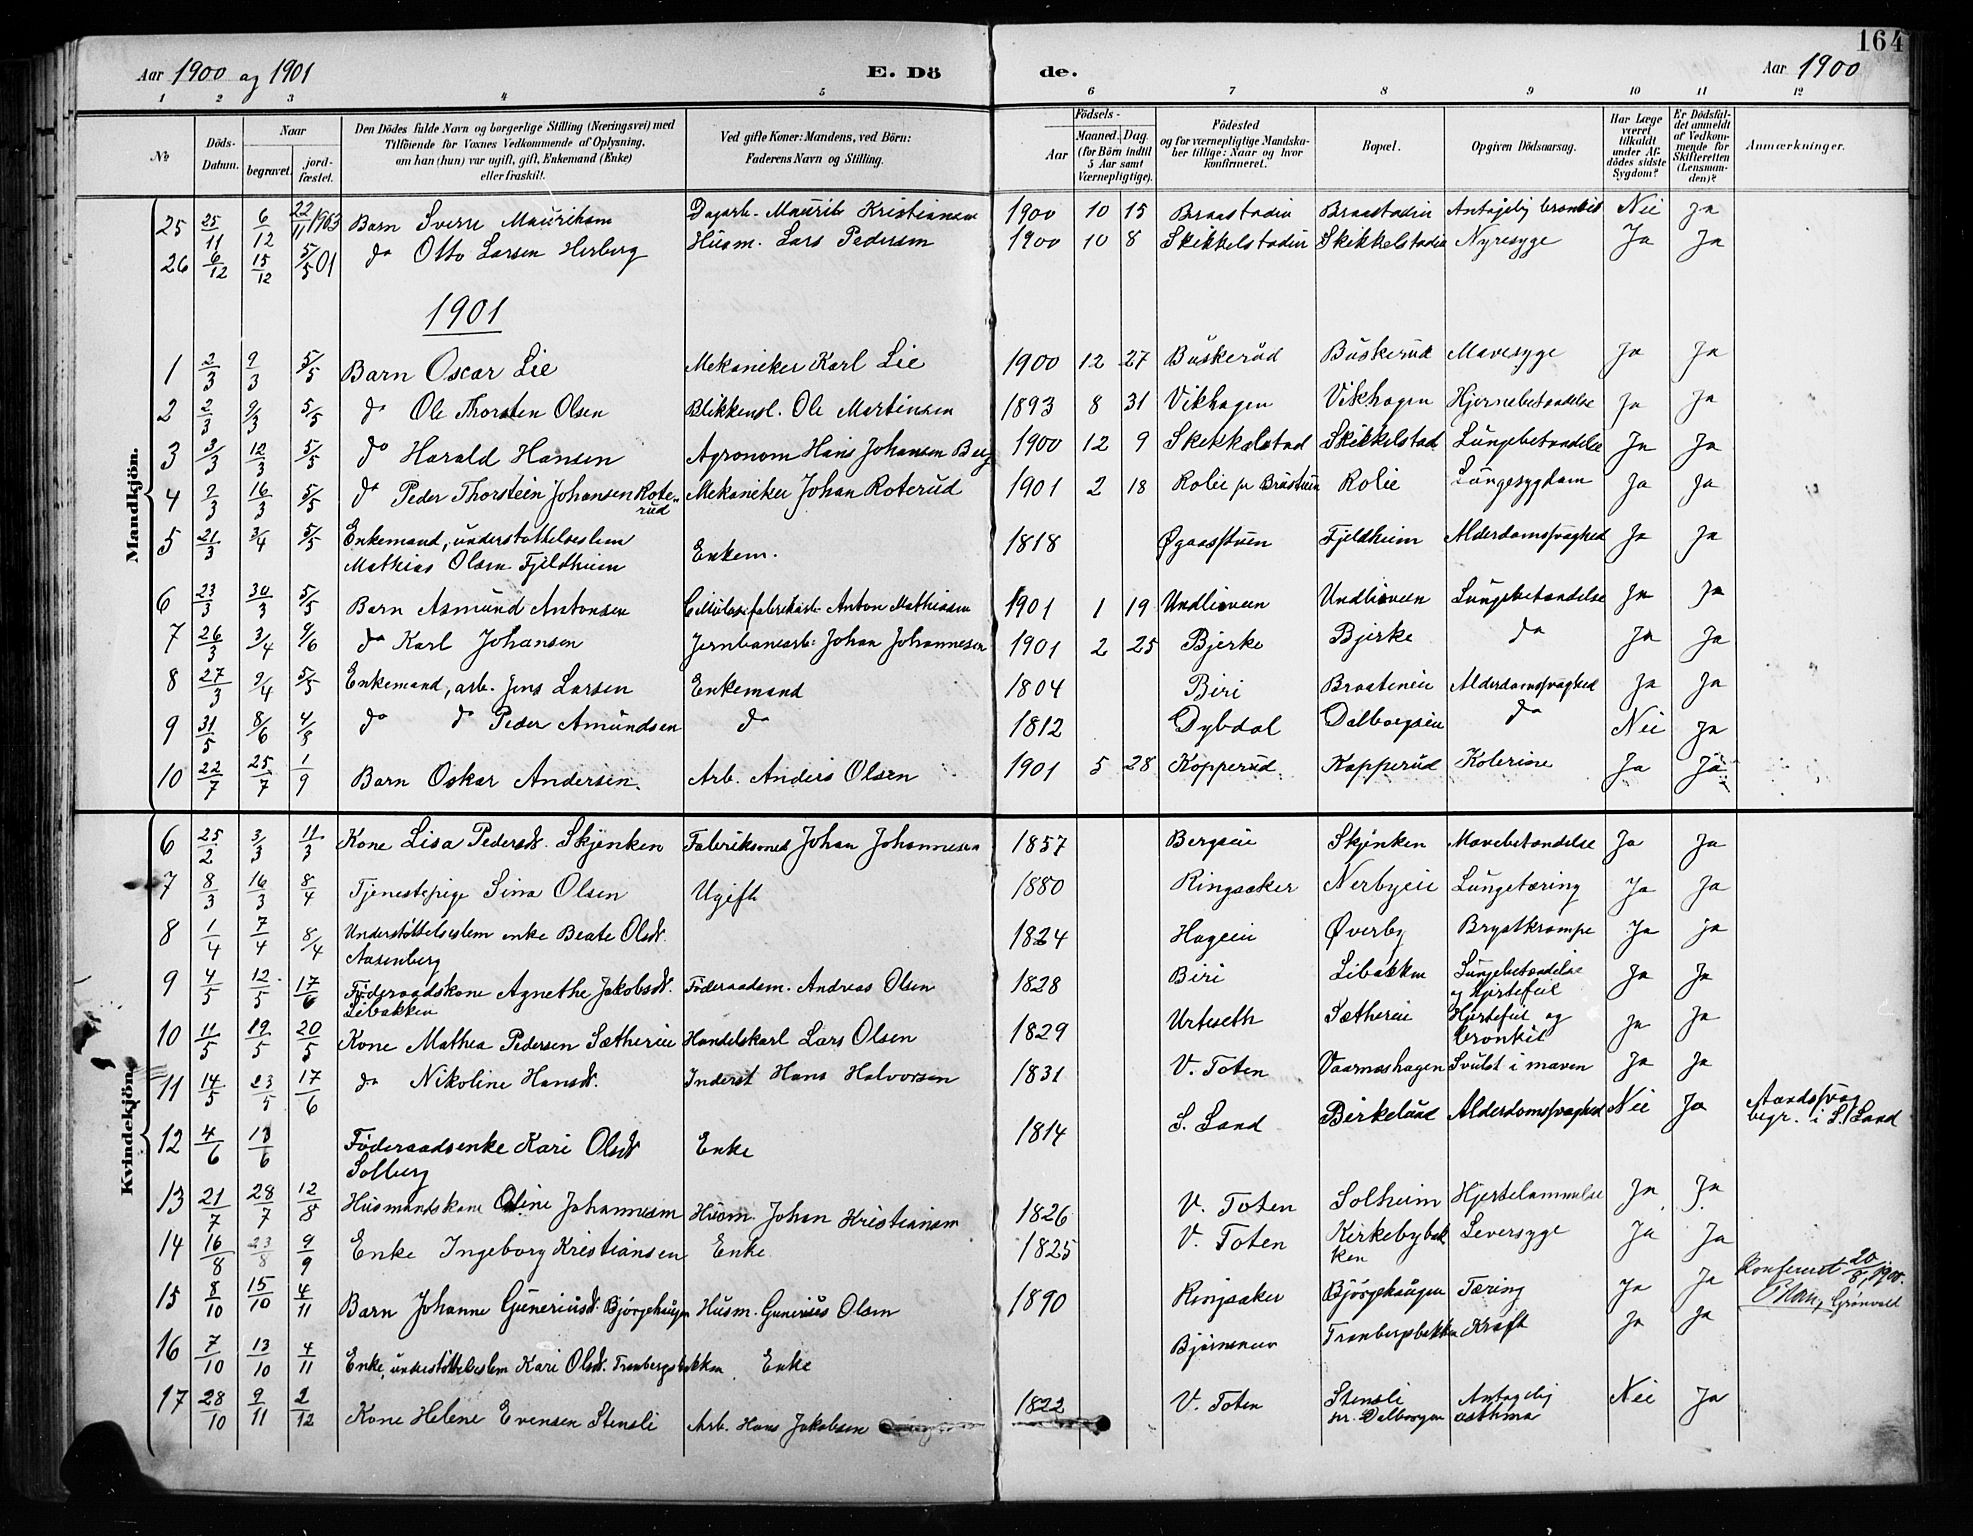 164
Aar 1900 og 1901 E. Dö de. Aar 1900
1 2 3 4 5 6 7 8 9 10 11 12
№ Döds-Datum. Naar begravet. jord-fæstet. Den Dödes fulde Navn og borgerlige Stilling (Næringsvei) med Tilföiende for Voxnes Vedkommende af Oplysning, om han (hun) var ugift, gift, Enkemand (Enke) eller fraskilt. Ved gifte Koner: Mandens, ved Börn: Faderens Navn og Stilling. Födsels- Aar Maaned. Dag. (for Börn indtil 5 Aar samt Værnepligtige). Födested og for værnepligtige Mandskaber tillige: Naar og hvor konfirmeret. Bopæl. Opgiven Dödsaarsag. Har Læge været tilkaldt under Afdödes sidste Sygdom? Er Dödsfaldet anmeldt af Vedkommende for Skifteretten (Lensmanden)? Anmærkninger.
Mandkjön.
25 25/11 6/12 22/11 1903 Barn Sverre Mauritsen Dagarb. Maurits Kristiansen 1900 10 15 Braastadeie Braastadeie Antagelig bronkit Nei ja
26 6/12 15/12 5/5 01 do Otto Larsen Herberg Husm. Lars Pedersen 1900 10 8 Skikkelstadeie Skikkelstadeie Nyresyge Ja Ja
1901
1 2/3 9/3 5/5 Barn Oscar Lie Mekaniker Karl Lie 1900 12 27 Buskerud Buskerud Mavesyge Ja Ja
2 2/3 9/3 5/5 do Ole Thorsten Olsen Blikkensl. Ole Martinsen 1893 8 31 Vikhagen Vikhagen Hjernebetændelse Ja Ja
3 3/3 12/3 5/5 do Harald Hansen Agronom Hans Johansen Berg 1900 12 9 Skikkelstad Skikkelstad Lungebetændelse Ja Ja
4 9/3 16/3 5/5 do Peder Thorstein Johansen Roterud Mekaniker Johan Roterud 1901 2 18 Rolie pr Braastuen Rolie Lungesygdom Ja Ja
5 21/3 3/4 5/5 Enkemand, understøttelseslem Mathias Olsen Fjeldheim Enkem. 1818 Øgaasstuen Fjeldheim Alderdomssvaghed Ja Ja
6 23/3 30/3 5/5 Barn Asmund Antonsen Cellulosefabrikarb. Anton Mathiasen 1901 1 19 Undlieveen Undlieveen Lungebetændelse Ja Ja
7 26/3 3/4 9/6 do Karl Johansen Jernbanearb. Johan Johannesen 1901 2 25 Bjerke Bjerke do Ja Ja
8 27/3 9/4 5/5 Enkemand, arb. Jens Larsen Enkemand 1804 Biri Braateneie Alderdomssvaghed Ja Ja
9 31/5 8/6 4/5 do do Peder Amundsen do 1812 Dybdal Dalborgseie do Nei Ja
10 22/7 25/7 1/9 Barn Oskar Andersen. Arb. Anders Olsen 1901 5 28 Kopperud Kopperud Kolerine Ja Ja
Kvindekjön.
6 25/2 3/3 11/3 Kone Lisa Pedersdt. Skjenken Fabriksmed Johan Johannesen 1857 Bergseie Skjenken Mavebetændelse Ja Ja
7 8/3 16/3 8/4 Tjenestepige Sina Olsen Ugift 1880 Ringsaker Nerbyeie Lungetæring Ja Ja
8 1/4 7/4 8/4 Understøttelseslem enke Beate Olsdt. Aasenberg 1824 Hageeie Øverby Brystkrampe Ja ja
9 4/5 12/5 17/6 Føderaadskone Agnethe Jakobsdt. Libakken Føderaadsm. Andreas Olsen 1828 Biri Libakken Lungebetændelse og Hjertefeil Ja Ja
10 11/5 19/5 20/5 Kone Mathea Pedersen Sætherie Handelskarl Lars Olsen 1829 Urteseth Sætherie Hjertefeil og bronkit Ja Ja
11 14/5 23/5 17/6 do Nikoline Hansdt. Inderst Hans Halvorsen 1831 V. Toten Vaarnæshagen Svulst i maven Ja Ja
12 4/6 13/6 Føderaadsenke Kari Olsdt Solberg Enke 1814 S. Land Birkelund Alderdomssvaghed Nei Ja Aandssvag begr. i S. Land
13 21/7 28/7 12/8 Husmandskone Oline Johannesen Husm. Johan Kristiansen 1826 V. Toten Solheim Hjertelammelse Ja Ja
14 16/8 23/8 9/9 Enke Ingeborg Kristiansen Enke 1825 V. Toten Kirkebybakken Leversyge Ja Ja
15 8/10 15/10 4/11 Barn Johanne Guneriusdt. Bjørgehaugen Husm. Gunerius Olsen 1890 Ringsaker Bjørgehaugen Tæring Ja Ja Konfereret 20/8, 1900. Grønvold
16 7/10 13/10 4/11 Enke, understøttelseslem Kari Olsdt. Tranbergsbakken Enke Tranbergsbakken Kræft Ja Ja
17 28/10 9/11 2/12 Kone Helene Evensen Stensli Arb. Hans Jakobsen 1822 V. Toten Stensli nr. Dalborgen Antagelig asthma Nei Ja